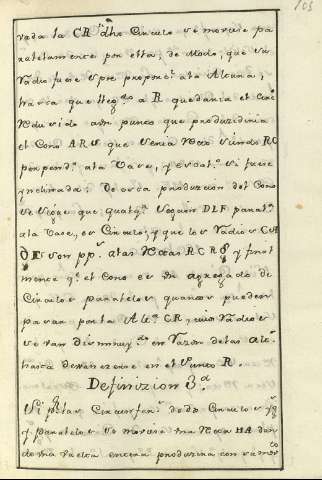 103
vada la CR, dho Circulo se moviese pa
ralelamente por ella, de Modo, que su
Radio fuese spre proporc.l ala Altura,
hasta que lleg.do a R quedaria el Circ
reducido a un punto que produziria
el Cono ARU que seria Recto siendo RC
perpend.r ala Vase, y escal.o si fuese
ynclinada: De esta produccion del Cono
se sigue que qualq.a seccion DLF paral.a
ala Vase, es Circulo, y que los Radios CA
DE son pp.s alas Rectas RC R y final
mente q.e el Cono es un agregado de
Circulos paralelos quantos pueden
pasar por la Alt.a CR, cuios Radios
se van disminuy.do en razon delas alt.s
hasta desvanecerse en el Punto R.
Definizion 3.a
Si por las Circunferen.s de dos Circulos
y paralelos se moviese una Recta HA dan
do una vuelta entera produziria con